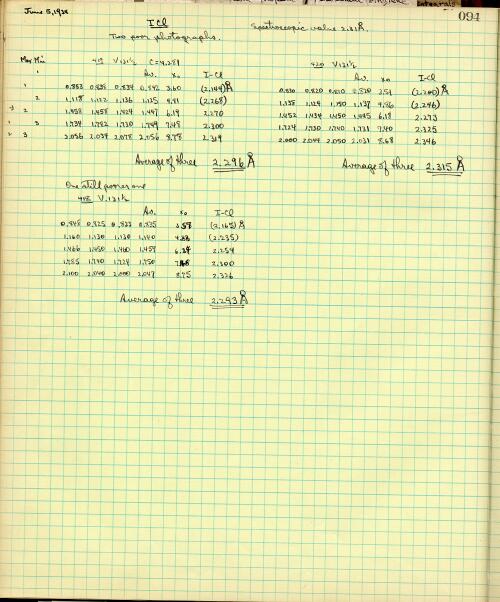 094
June 5, 1935
ICl Spectroscopic value 2.31Å.
Two poor photographs.
Max Min 419 V131½ C=4.281
Av. x₀ I-Cl
1 0.853 0.838 0.834 0.842 3.60 (2.144)Å
2 1.118 1.122 1.136 1.125 4.81 (2.268)
2 1.458 1.458 1.424 1.447 6.19 2.270
3 1.734 1.782 1.730 1.749 7.48 2.300
3 2.056 2.034 2.078 2.056 8.78 2.319
Average of three 2.296 Å
420 V131½
Av. x₀ I-Cl
0.830 0.820 0.810 0.820 3.51 (2.200)Å
1.138 1.124 1.150 1.137 4.86 (2.246)
1.452 1.434 1.450 1.445 6.18 2.273
1.724 1.730 1.740 1.731 7.40 2.325
2.000 2.044 2.050 2.031 8.68 2.346
Average of three 2.315 Å
One still poorer one
418 V.131½
Av. x₀ I-Cl
0.848 0.825 0.833 0.835 3.58 (2.162) Å
1.160 1.130 1.130 1.140 4.88 (2.235)
1.466 1.450 1.460 1.459 6.24 2.254
1.785 1.740 1.724 1.750 7.48 2.300
2.100 2.040 2.000 2.047 8.75 2.326
Average of three 2.293 Å